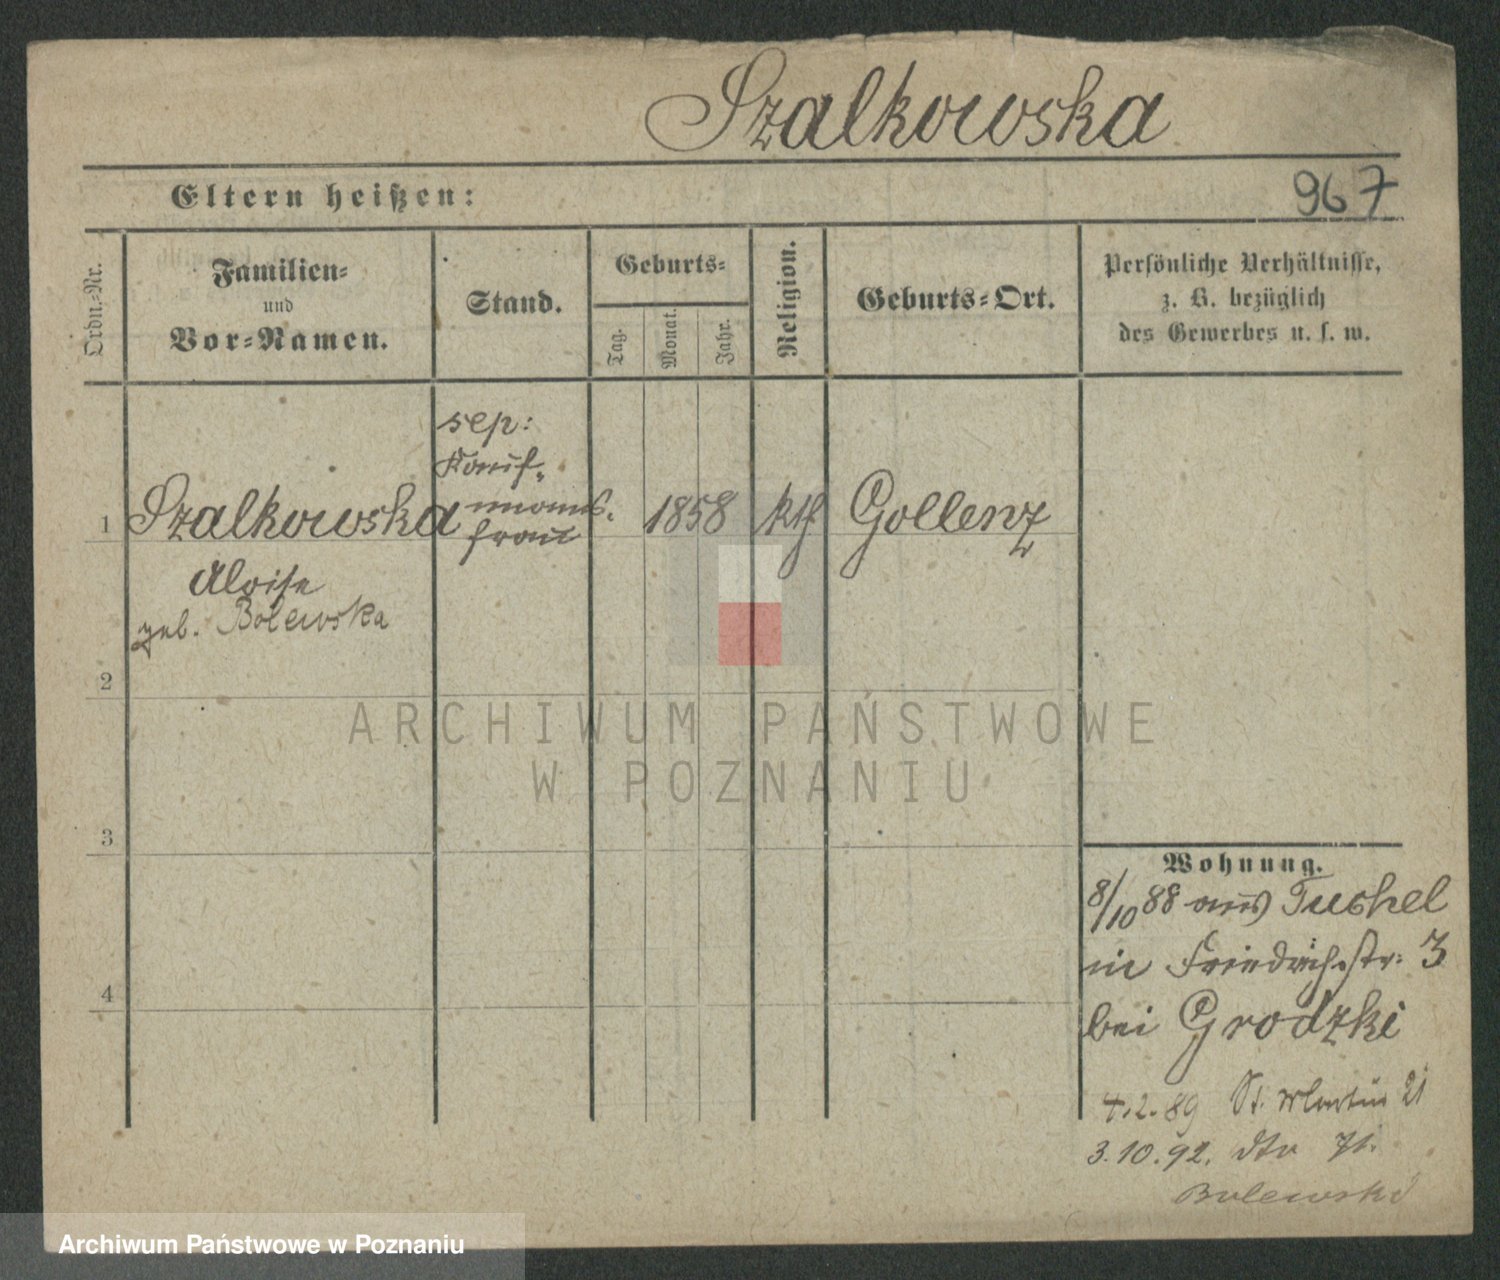 Szalkowska
Eltern heißen:
967
Ordn.-Nr.
Familien-
und
Vor-Namen.
Stand.
Geburts-
Tag.
Monat.
Jahr.
Religion.
Geburts-Ort.
Persönliche Verhältnisse,
z. B. bezüglich
des Gewerbes u. s. w.
sep:
Kauf-
manns.
frau
1 Szalkowska 1858 kth Gollenz
Aloise
geb. Bolewska
2
3
4
Wohnung.
8/10 88 aus Tuchel
in Friedrichstr: 3
bei Grodzki
4.2.89 St. Martin 21
3.10.92. dto 71.
Bolewski
ARCHIWUM PAŃSTWOWE
W POZNANIU
Archiwum Państwowe w Poznaniu